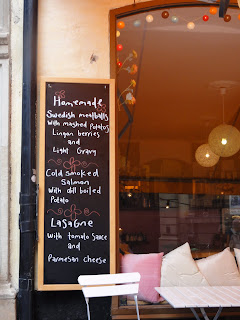 Homemade
Swedish meatballs
with mashed Potatos
Lingon berries
and
Light Gravy
Cold smoked
Salmon
with dill boiled
Potato
Lasagne
with tomato sauce
and
Parmesan cheese